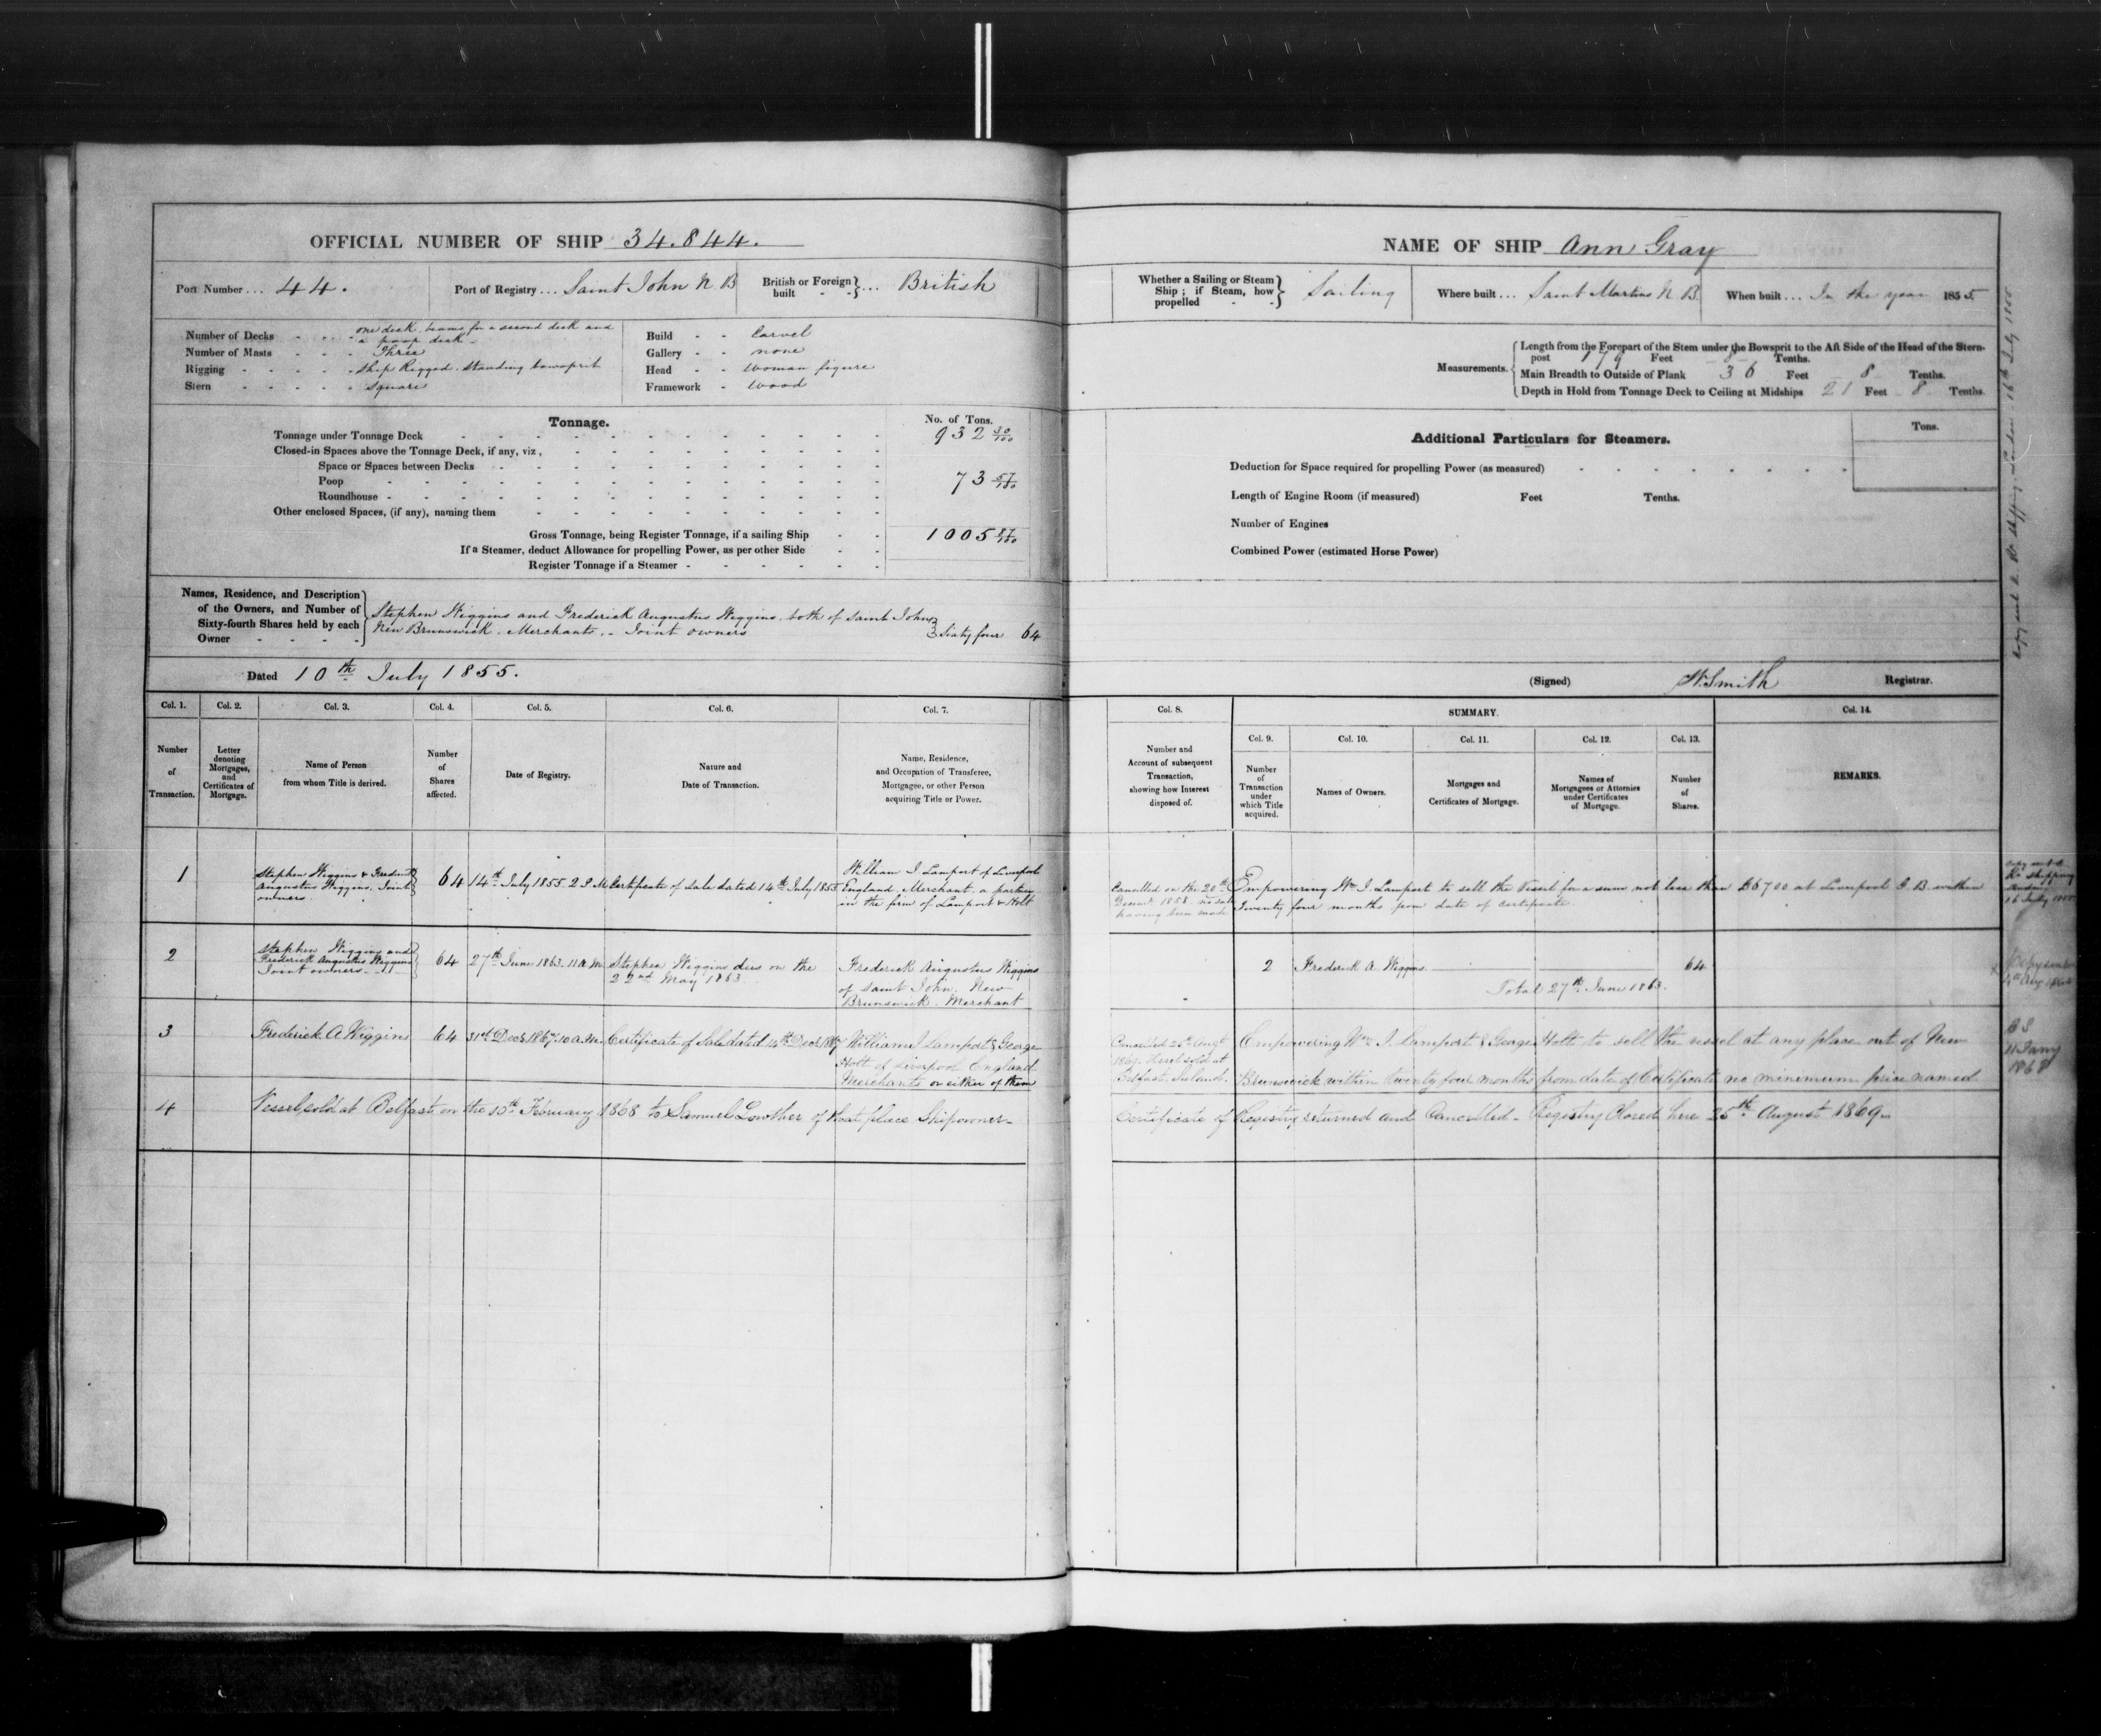 OFFICIAL NUMBER OF SHIP 34.844.
Port Number ... 44.
Port of Registry ... Saint John N B
British or Foreign built - - } ... British
Number of Decks - - - one deck, beams for a second deck and
a poop deck -
Number of Masts - - - Three
Rigging - - - - - Ship Rigged. Standing bowsprit
Stern - - - - - Square
Build - - Carvel
Gallery - - none
Head - - Woman figure
Framework - Wood
Tonnage.
No. of Tons.
Tonnage under Tonnage Deck 932 30/100
Closed-in Spaces above the Tonnage Deck, if any, viz,
Space or Spaces between Decks
Poop 73 57/100
Roundhouse
Other enclosed Spaces, (if any), naming them
Gross Tonnage, being Register Tonnage, if a sailing Ship 1005 87/100
If a Steamer, deduct Allowance for propelling Power, as per other Side
Register Tonnage if a Steamer
Names, Residence, and Description
of the Owners, and Number of
Sixty-fourth Shares held by each
Owner - - - -
Stephen Wiggins and Frederick Augustus Wiggins, both of Saint John
New Brunswick. Merchants. - Joint owners } Sixty four 64
Dated 10th July 1855.
Col. 1. Col. 2. Col. 3. Col. 4. Col. 5. Col. 6. Col. 7.
Number of Transaction.
Letter denoting Mortgages, and Certificates of Mortgage.
Name of Person from whom Title is derived.
Number of Shares affected.
Date of Registry.
Nature and Date of Transaction.
Name, Residence, and Occupation of Transferee, Mortgagee, or other Person acquiring Title or Power.
1
Stephen Wiggins & Frederick
Augustus Wiggins. Joint
owners.
64
14th July 1855. 2 P M
Certificate of Sale dated 14th July 1855
William I Lamport of Liverpool
England, Merchant. a partner
in the firm of Lamport & Holt
2
Stephen Wiggins and
Frederick Augustus Wiggins
Joint owners -
64
27th June 1863. 11 A M
Stephen Wiggins dies on the
22nd May 1863.
Frederick Augustus Wiggins
of Saint John. New
Brunswick. Merchant
3
Frederick A Wiggins
64
31st Decr 1867. 10 a.m.
Certificate of Sale dated 14th Decr 1867
William I Lamport & George
Holt of Liverpool England
Merchants or either of them
4
Vessel sold at Belfast on the 15th February 1868 to Samuel Lowther of that place Shipowner -
NAME OF SHIP Ann Gray
Whether a Sailing or Steam Ship ; if Steam, how propelled - - } Sailing
Where built ... Saint Martins N B.
When built ... In the year 1855
Measurements.
Length from the Forepart of the Stem under the Bowsprit to the Aft Side of the Head of the Stern-
post 179 Feet 8 Tenths.
Main Breadth to Outside of Plank 36 Feet 8 Tenths.
Depth in Hold from Tonnage Deck to Ceiling at Midships 21 Feet 8 Tenths.
Additional Particulars for Steamers.
Tons.
Deduction for Space required for propelling Power (as measured)
Length of Engine Room (if measured) Feet Tenths.
Number of Engines
Combined Power (estimated Horse Power)
(Signed) W. Smith Registrar.
Col. 8. SUMMARY. Col. 14.
Col. 9. Col. 10. Col. 11. Col. 12. Col. 13.
Number and Account of subsequent Transaction, showing how Interest disposed of.
Number of Transaction under which Title acquired.
Names of Owners.
Mortgages and Certificates of Mortgage.
Names of Mortgagees or Attornies under Certificates of Mortgage.
Number of Shares.
REMARKS.
Cancelled on the 20th
Decemr 1858. no sale
having been made
Empowering Wm I. Lamport to sell the Vessel for a sum not less than £6700 at Liverpool G B within
Twenty four months from date of certificate
2 Frederick A. Wiggins. 64
Total 27th June 1863.
Cancelled 25th Augt
1869. Vessel sold at
Belfast, Ireland.
Empowering Wm I. Lamport & George Holt to sell the vessel at any place out of New
Brunswick within twenty four months from date of Certificate no minimum price named
Certificate of Registry returned and Cancelled - Registry Closed here 25th August 1869 -
Copy sent to Rr Shipping, London. 16th July 1855
Copy sent to
Rr Shipping
London
16 July 1855
Copy sent
C S
11 Jany
1868